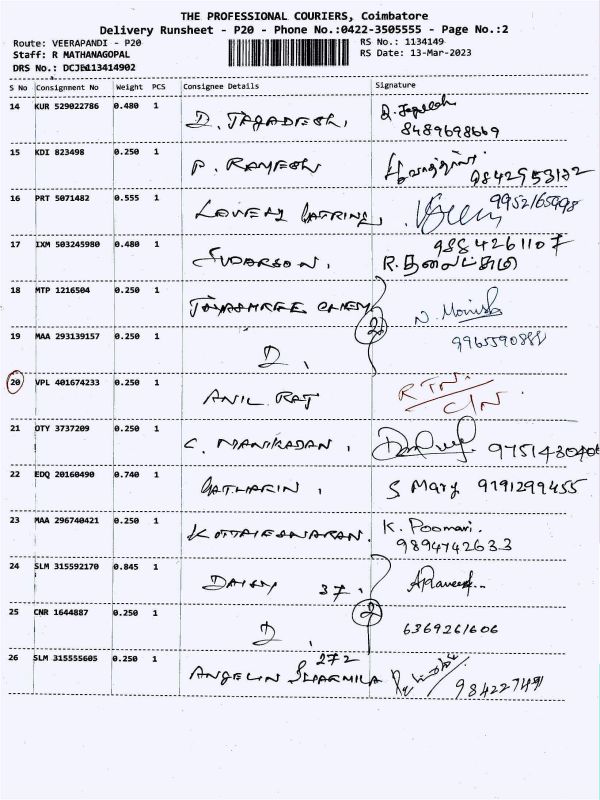 THE PROFESSIONAL COURIERS, Coimbatore
Delivery Runsheet - P20 - Phone No.:0422-3505555 - Page No.:2
Route: VEERAPANDI - P20
RS No.: 1134149
Staff: R MATHANAGOPAL
RS Date: 13-Mar-2023
DRS No.: DCJB113414902
S No Consignment No Weight PCS Consignee Details Signature
14 KUR 529022786 0.480 1 D. JAGADESH. D. Jagadesh
8489698669
15 KDI 823498 0.250 1 P. RAMESH
9842953182
16 PRT 5071482 0.555 1 LOVELY 9952165998
17 IXM 503245980 0.480 1 SUDARSON. 9884261107
R.
18 MTP 1216504 0.250 1 JAYASHREE CHEM N. Monish
2
19 MAA 293139157 0.250 1 D. 9965590888
20 VPL 401674233 0.250 1 ANIL RAJ RTN.
C/N
21 OTY 3737209 0.250 1 C. MANIKADAN.
22 EDQ 20160490 0.740 1 CATHARIN. S Mary 9191299455
23 MAA 296740421 0.250 1 KOTTAIESWARAN. K. Poomari.
9894742633
24 SLM 315592170 0.845 1 DAISY 37.
2
25 CNR 1644887 0.250 1 D. 6369261606
26 SLM 315555605 0.250 1 272
ANGELIN SHARMILA